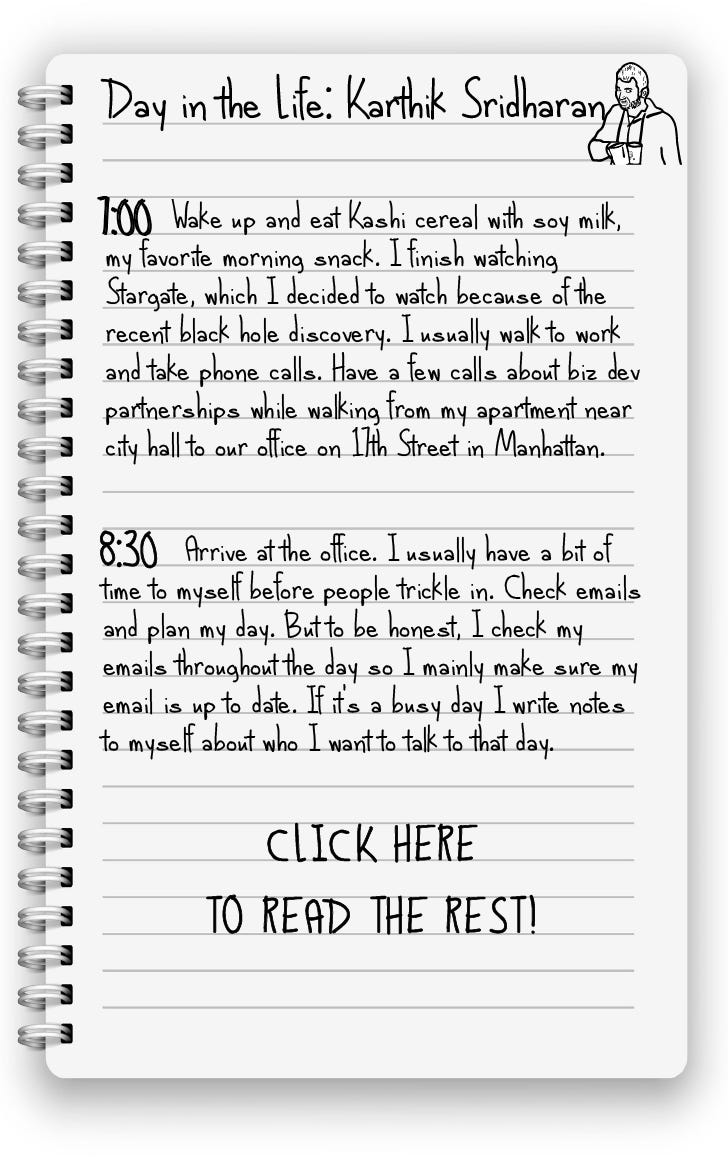 Day in the Life: Karthik Sridharan
7:00 Wake up and eat Kashi cereal with soy milk,
my favorite morning snack. I finish watching
Stargate, which I decided to watch because of the
recent black hole discovery. I usually walk to work
and take phone calls. Have a few calls about biz dev
partnerships while walking from my apartment near
city hall to our office on 17th Street in Manhattan.
8:30 Arrive at the office. I usually have a bit of
time to myself before people trickle in. Check emails
and plan my day. But to be honest, I check my
emails throughout the day so I mainly make sure my
email is up to date. If it's a busy day I write notes
to myself about who I want to talk to that day.
CLICK HERE
TO READ THE REST!